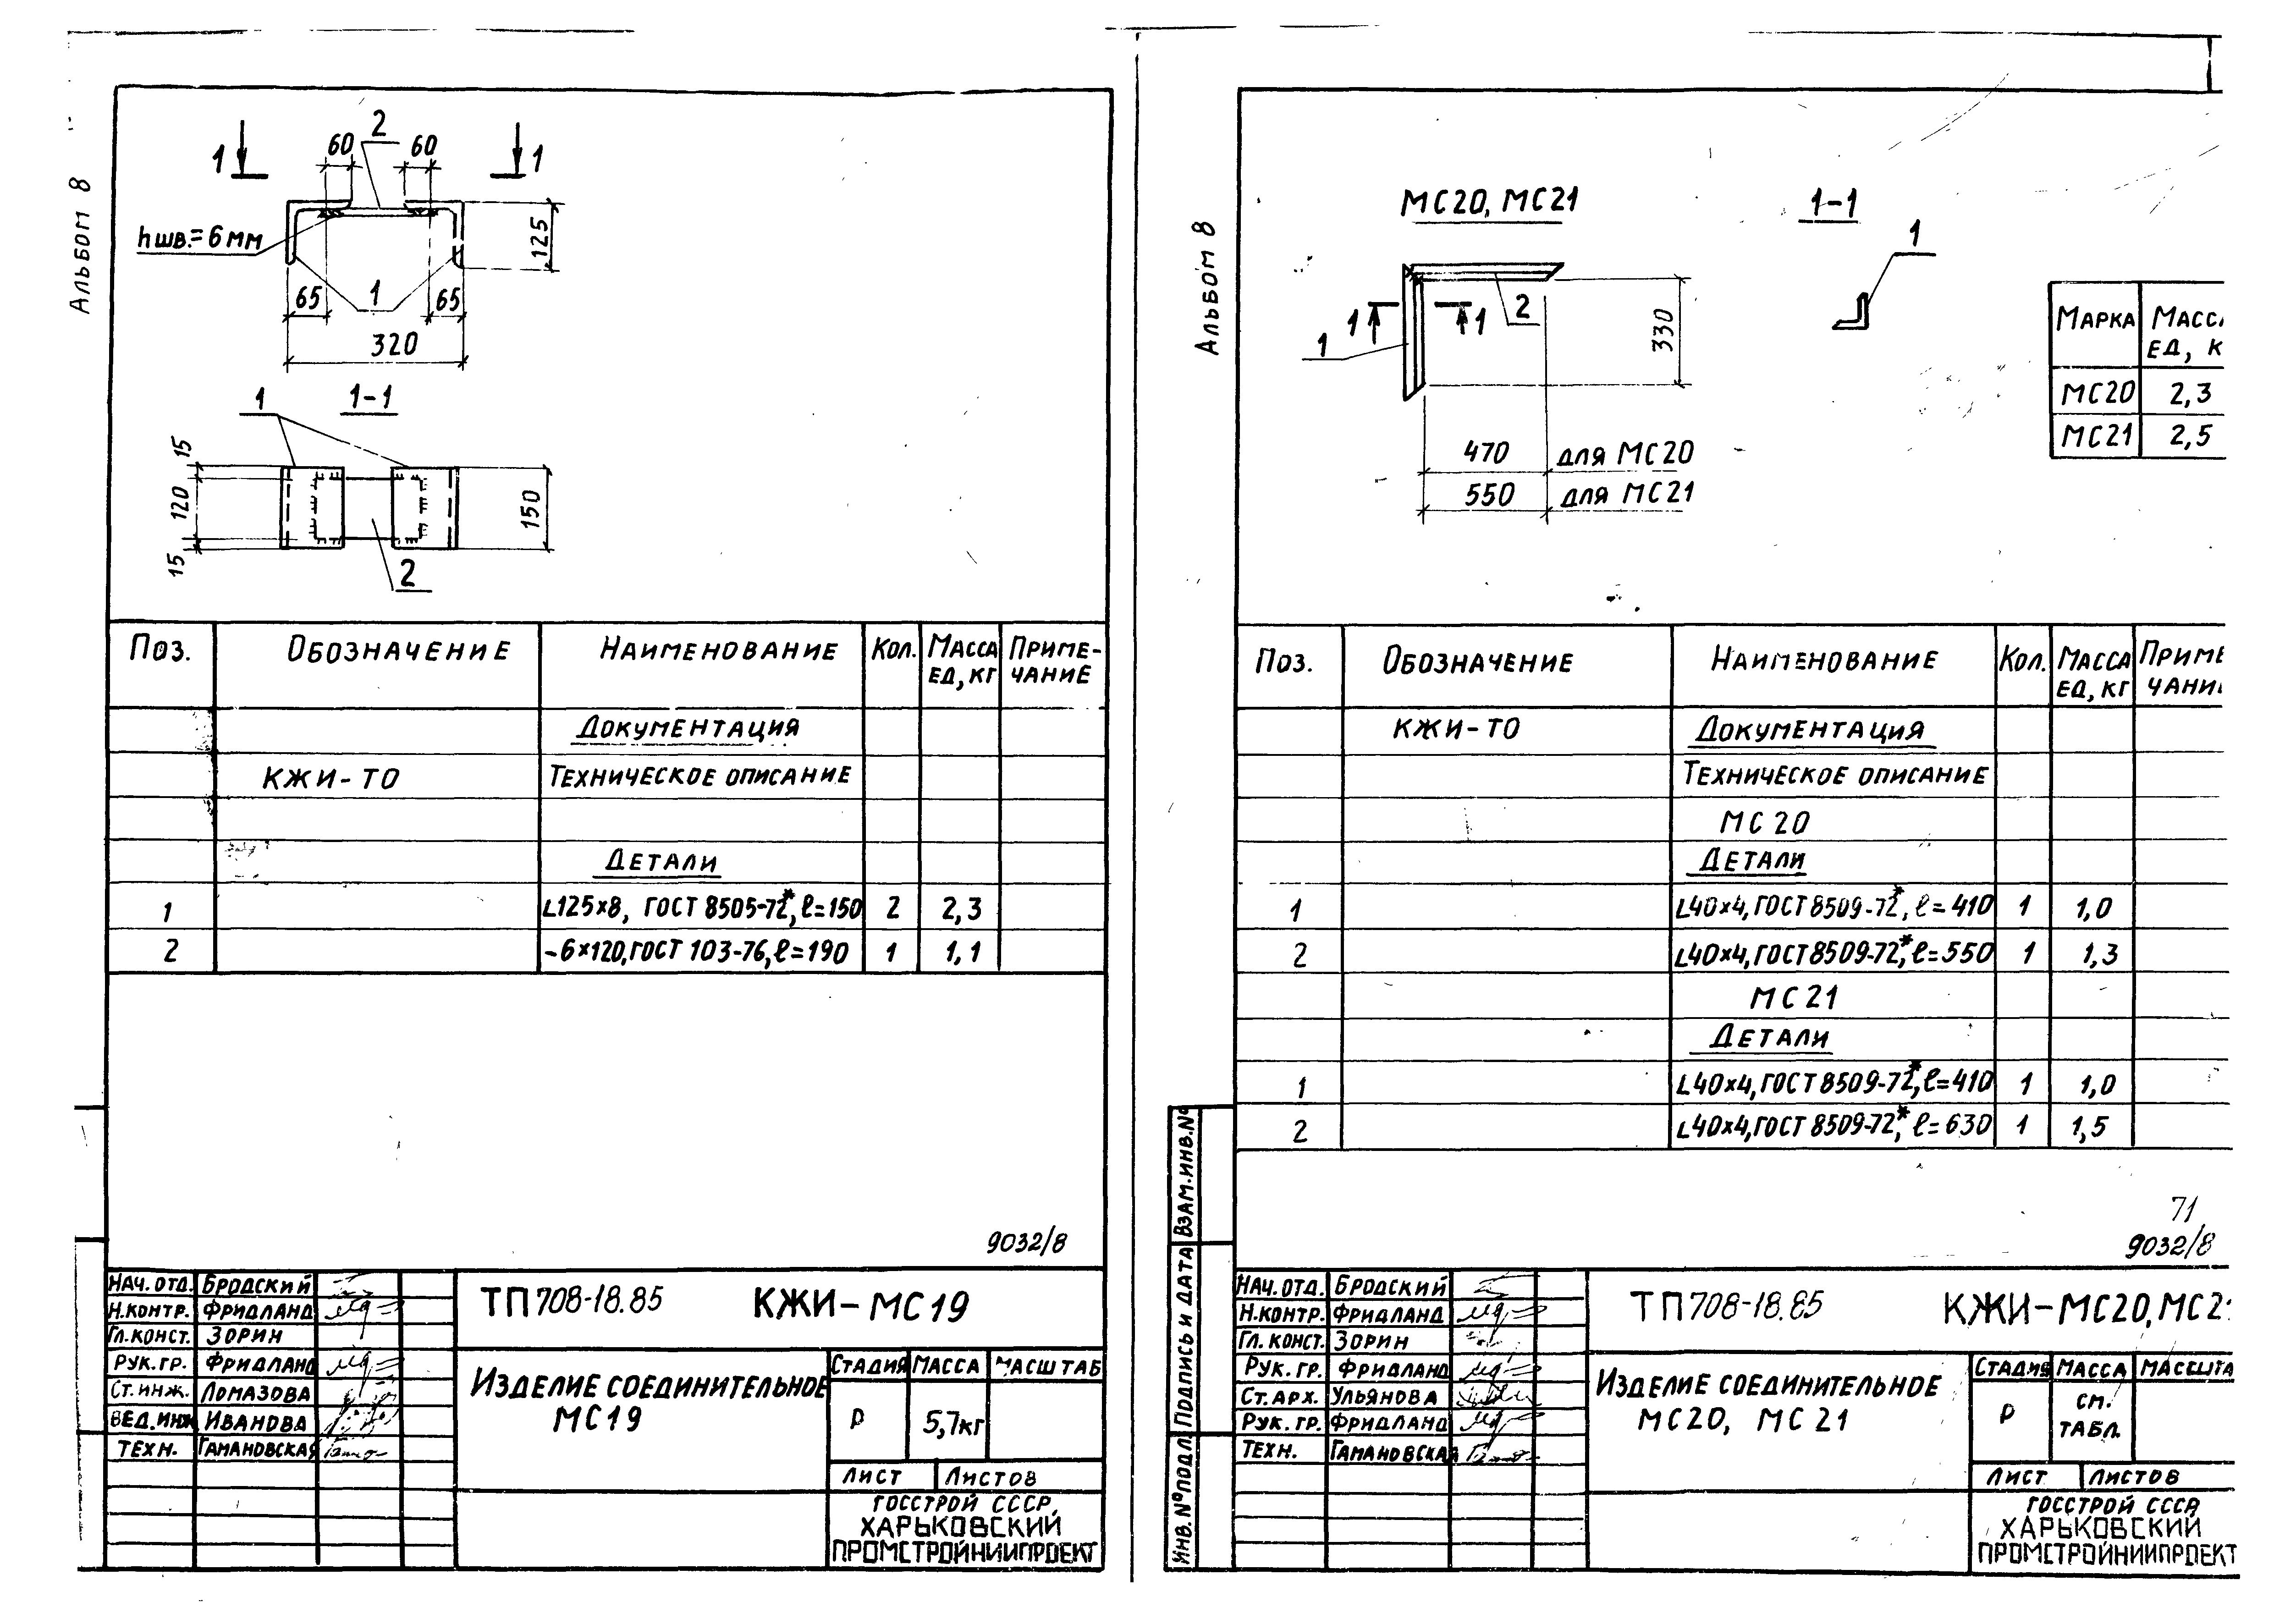 Альбом 8
1 1
60 2 60
hшв.=6мм
125
65 1 65
320
1 1-1
15
120
15
150
2
Поз. Обозначение Наименование Кол. Масса ед, кг Приме-чание
Документация
КЖИ-ТО Техническое описание
Детали
1 L125×8, ГОСТ 8505-72*, ℓ=150 2 2,3
2 -6×120, ГОСТ 103-76, ℓ=190 1 1,1
9032/8
Нач. отд. Бродский
Н.контр. Фридланд
Гл.конст. Зорин
Рук. гр. Фридланд
Ст. инж. Ломазова
Вед. инж Иванова
Техн. Гамановская
ТП 708-18.85 КЖИ-МС19
Изделие соединительное
МС19
Стадия Масса Масштаб
Р 5,7кг
Лист Листов
Госстрой СССР,
Харьковский
Промстройниипроект
Альбом 8
МС20, МС21 1-1
1
1 1
2
1
330
470 для МС20
550 для МС21
Марка Масс
ед, к
МС20 2,3
МС21 2,5
Поз. Обозначение Наименование Кол. Масса ед, кг Приме
чани
КЖИ-ТО Документация
Техническое описание
МС20
Детали
1 L40×4, ГОСТ 8509-72*, ℓ=410 1 1,0
2 L40×4, ГОСТ 8509-72*, ℓ=550 1 1,3
МС21
Детали
1 L40×4, ГОСТ 8509-72*, ℓ=410 1 1,0
2 L40×4, ГОСТ 8509-72*, ℓ=630 1 1,5
71
9032/8
Взам. инв. №
Подпись и дата
Инв. № подл.
Нач. отд. Бродский
Н.контр. Фридланд
Гл. конст. Зорин
Рук. гр. Фридланд
Ст. арх. Ульянова
Рук. гр. Фридланд
Техн. Гамановская
ТП 708-18.85 КЖИ-МС20, МС2
Изделие соединительное
МС20, МС21
Стадия Масса Масшта
Р см.
табл.
Лист Листов
Госстрой СССР
Харьковский
Промстройниипроект